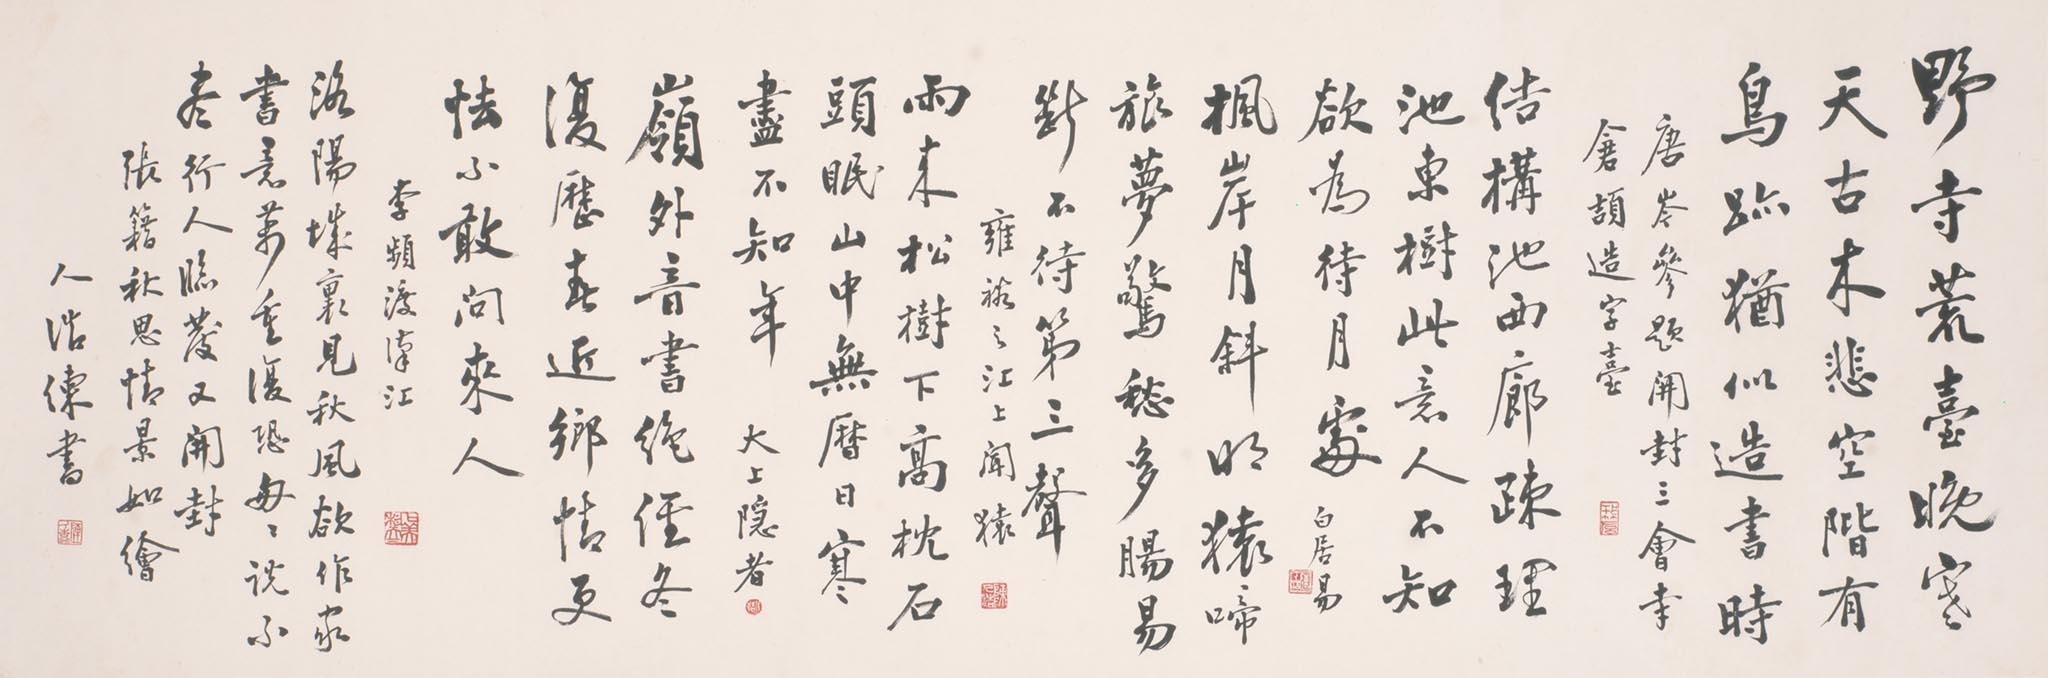 野寺荒臺晚寒
天古木悲空階有
鳥跡猶似造書時
唐岑參題開封三會寺
倉頡造字臺
結構池西廊疎理
池東樹此意人不知
欲為待月處
白居易
楓岸月斜明猿啼
旅夢驚愁多腸易
斷不待第三聲
雍裕之江上聞猿
雨来松樹下高枕石
頭眠山中無曆日寒
盡不知年
太上隱者
嶺外音書絕經冬
復歷春近鄉情更
怯不敢問來人
李頻渡漢江
洛陽城裏見秋風欲作家
書意萬重復恐匆匆說不
盡行人臨發又開封
張籍秋思情景如繪
人浩練書